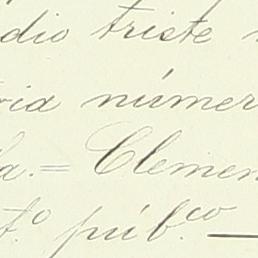 dio triste
ria númer
la.= Clemen
t.º púb.co —